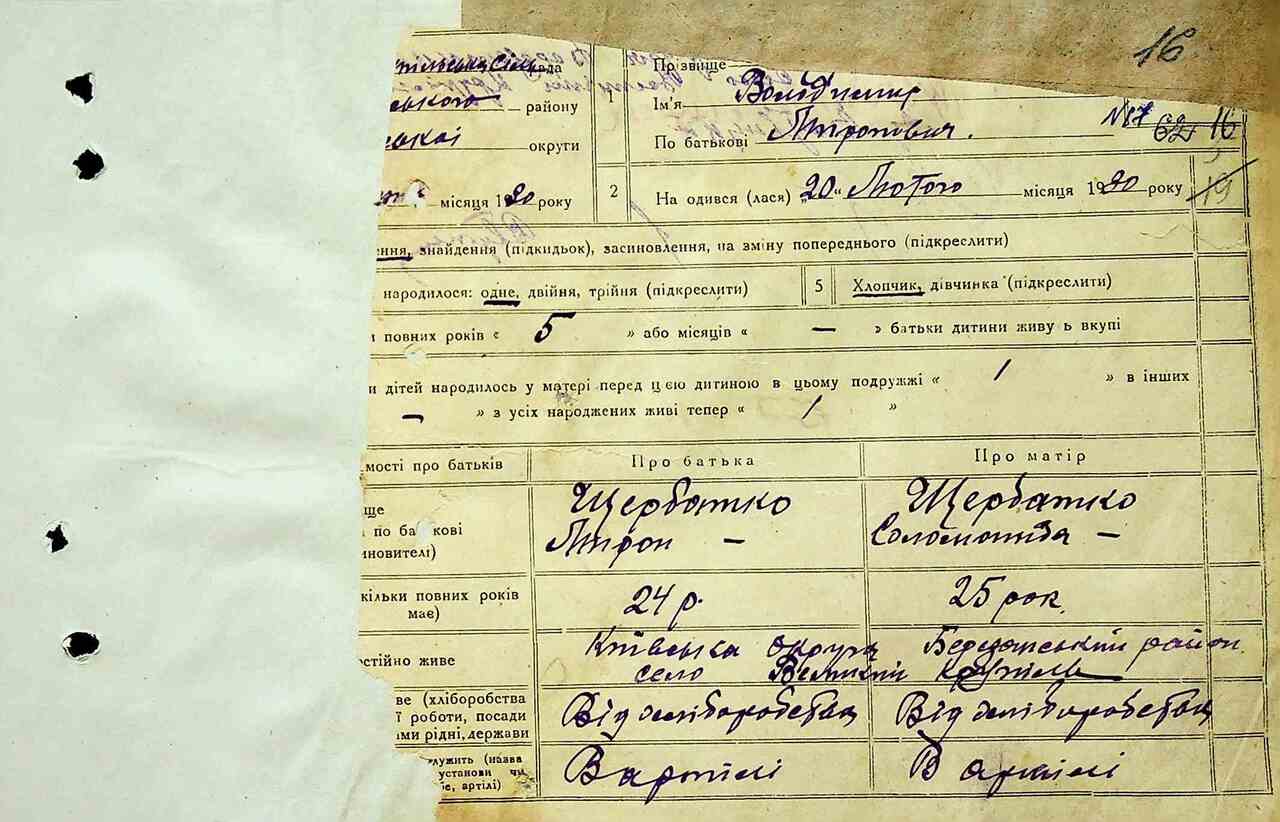 16
Прізвище
района
1
Ім'я Володимир
ського району
По батькові Миронович.
N 87
16
ської округи
2
На одився (лася) „20“ Лютого місяця 1930 року
19
місяця 1930 року
ення, знайдення (підкидьок), засиновлення, на зміну попереднього (підкреслити)
народилося: одне, двійня, трійня (підкреслити)
5
Хлопчик, дівчинка (підкреслити)
и повних років « 5 » або місяців « — » батьки дитини живу ь вкупі
и дітей народилось у матері перед цією дитиною в цьому подружжі « 1 » в інших
— » з усіх народжених живі тепер « 1 »
мості про батьків
Про батька
Про матір
ще
по ба кові
новителі)
Щербатко
Мирон —
Щербатко
Соломонида —
кільки повних років
має)
24 р.
25 рок.
стійно живе
Київська округа Березанський район.
село Великий Крупіль
ве (хліборобства
ї роботи, посади
ами рідні, держави
Від хліборобства
Від хліборобства
лужить (назва
установи чи
бе, артілі)
В артілі
В артілі